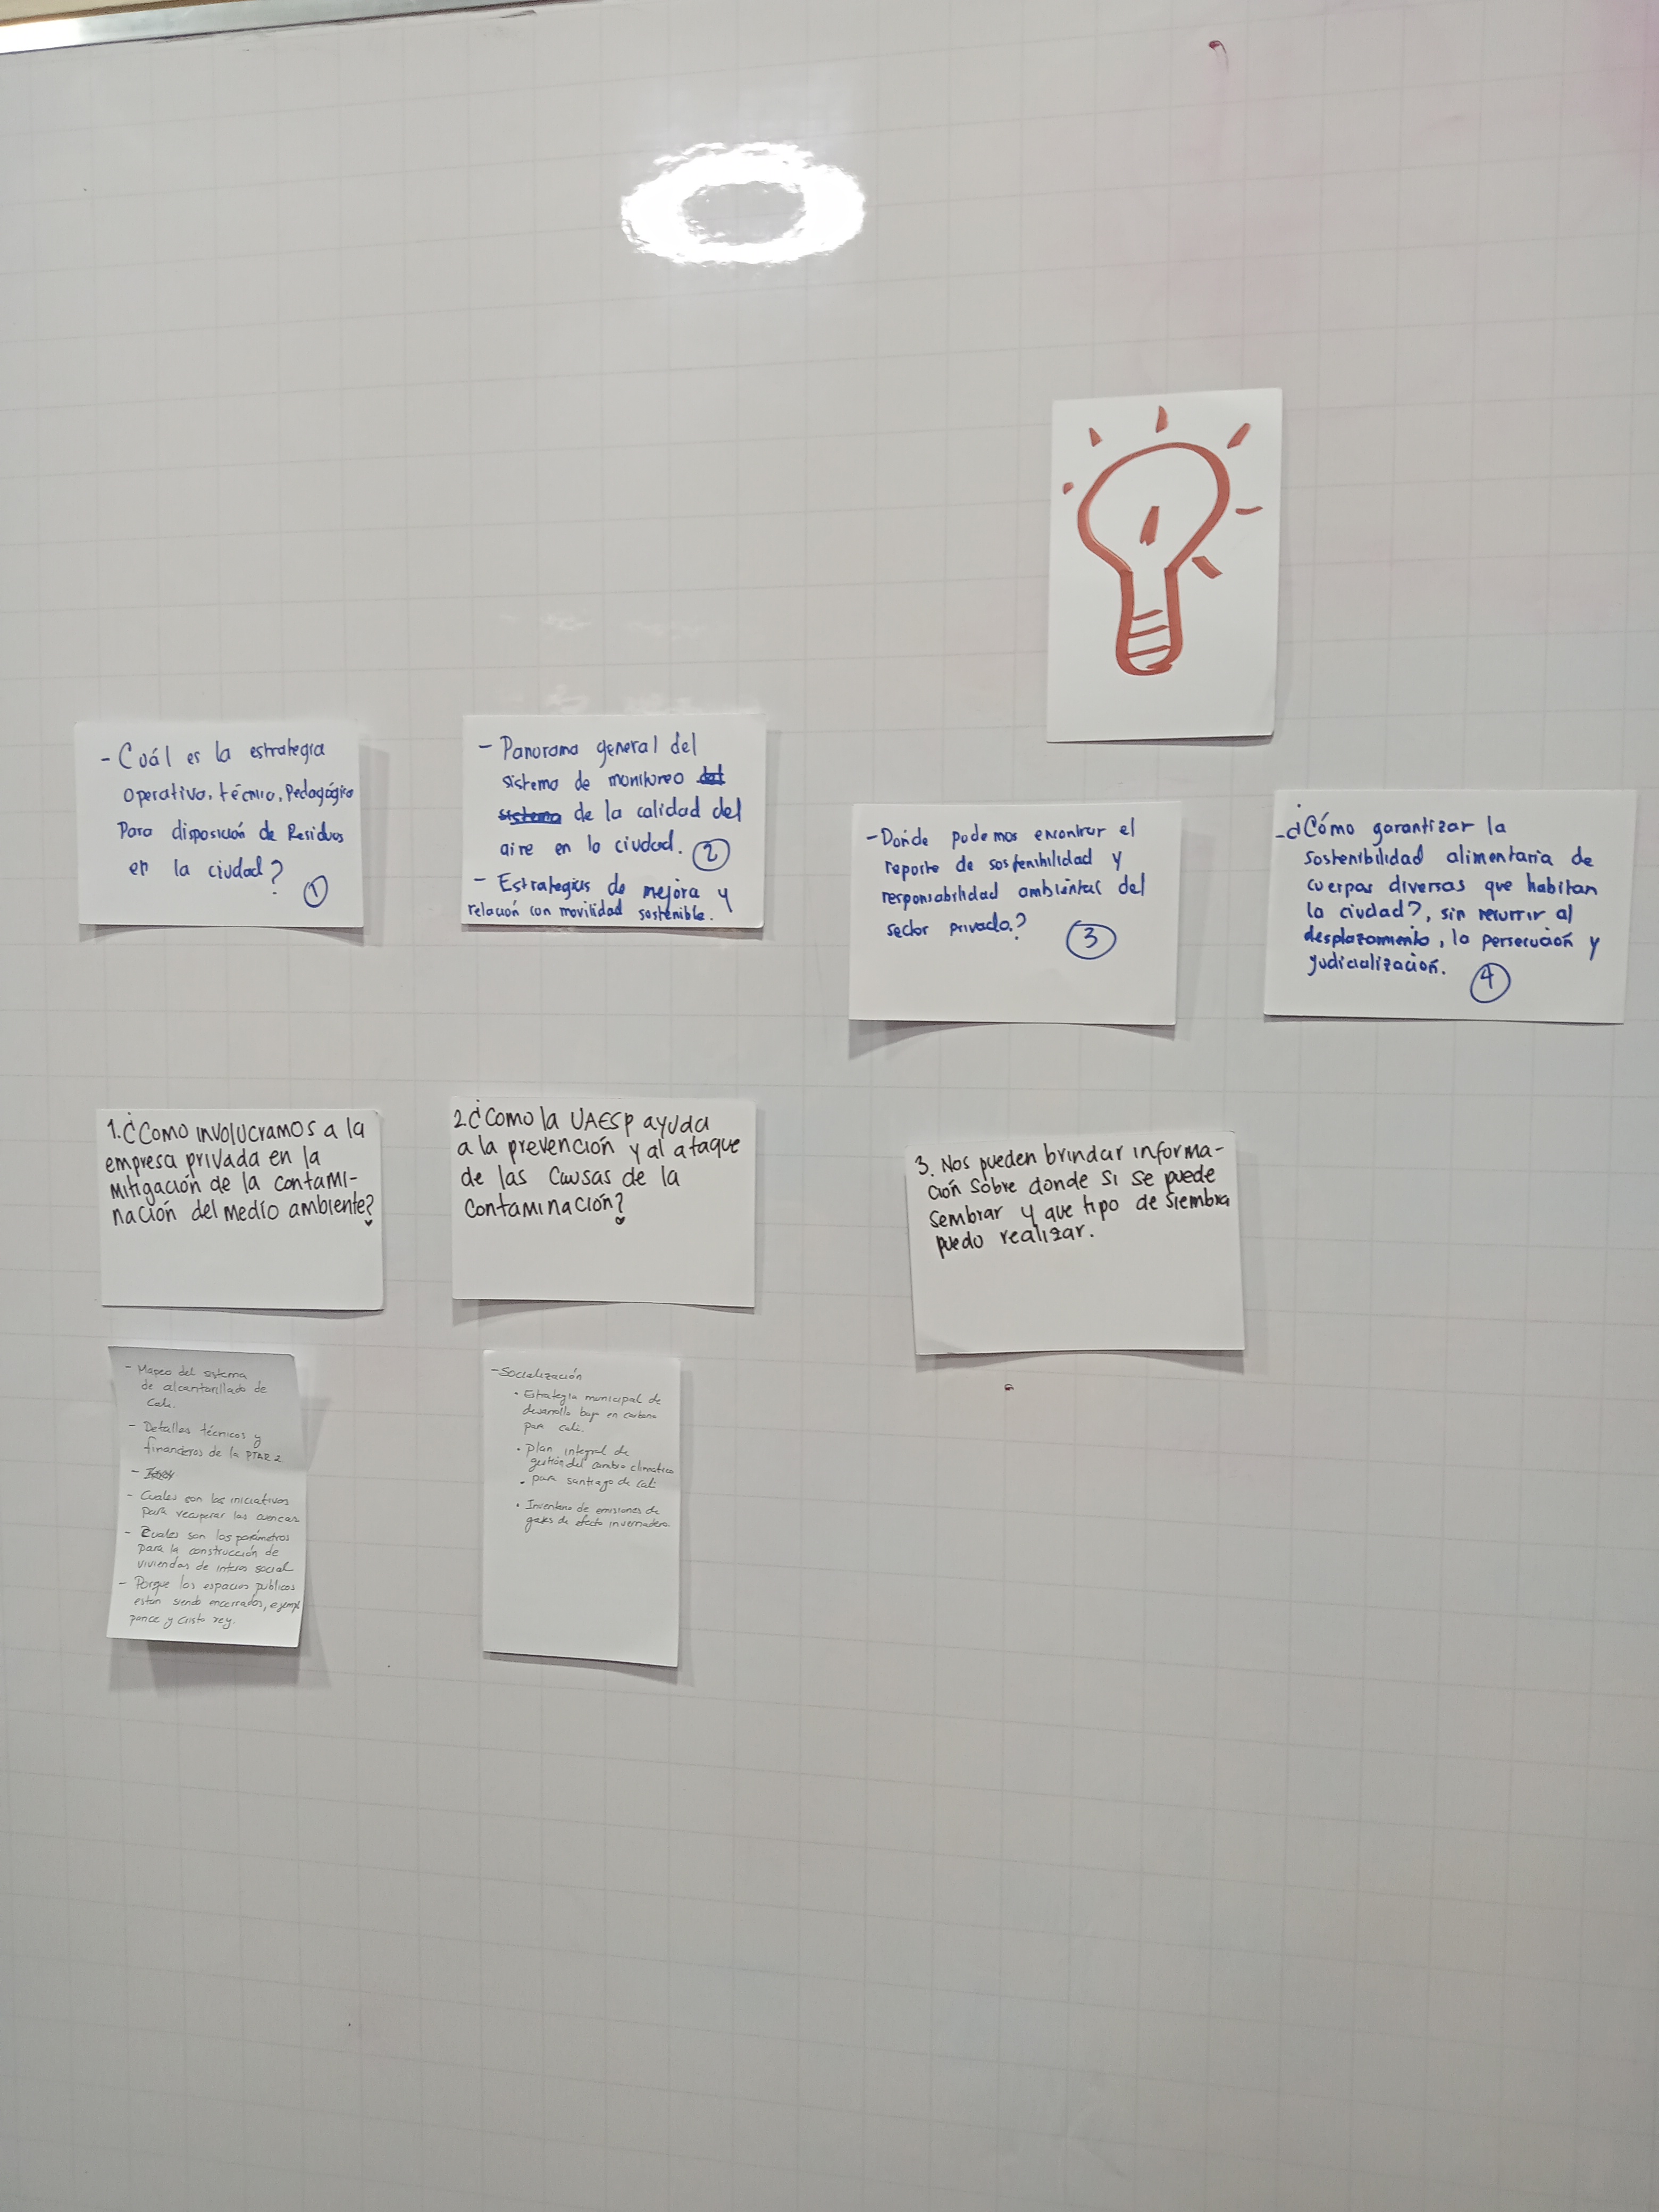 - Cuál es la estrategia
operativa, técnico, Pedagógico
Para disposición de Residuos
en la ciudad?
1
- Panorama general del
sistema de monitoreo del
sistema de la calidad del
aire en la ciudad. 2
- Estrategias de mejora y
relación con movilidad sostenible.
- Donde podemos encontrar el
reporte de sostenibilidad y
responsabilidad ambiental del
sector privado?
3
- ¿Cómo garantizar la
sostenibilidad alimentaria de
cuerpos diversas que habitan
la ciudad?, sin recurrir al
desplazamiento, la persecución y
judicialización.
4
1. ¿Como involucramos a la
empresa privada en la
mitigación de la contami-
nación del medio ambiente?
2. ¿Como la UAESP ayuda
a la prevención y al ataque
de las causas de la
contaminación?
3. Nos pueden brindar informa-
ción sobre donde si se puede
sembrar y que tipo de siembra
puedo realizar.
- Mapeo del sistema
de alcantarillado de
Cali.
- Detalles técnicos y
financieros de la PTAR 2
-
- Cuales son las iniciativas
para recuperar las cuencas
- Cuales son los parámetros
para la construcción de
viviendas de interes social
- Porque los espacios publicos
estan siendo encerrados, ejempl
ponce y cristo rey.
- Socialización
• Estrategia municipal de
desarrollo bajo en carbono
para cali.
• Plan integral de
gestión del cambio climatico
• para santiago de cali
• Inventario de emisiones de
gases de efecto invernadero.